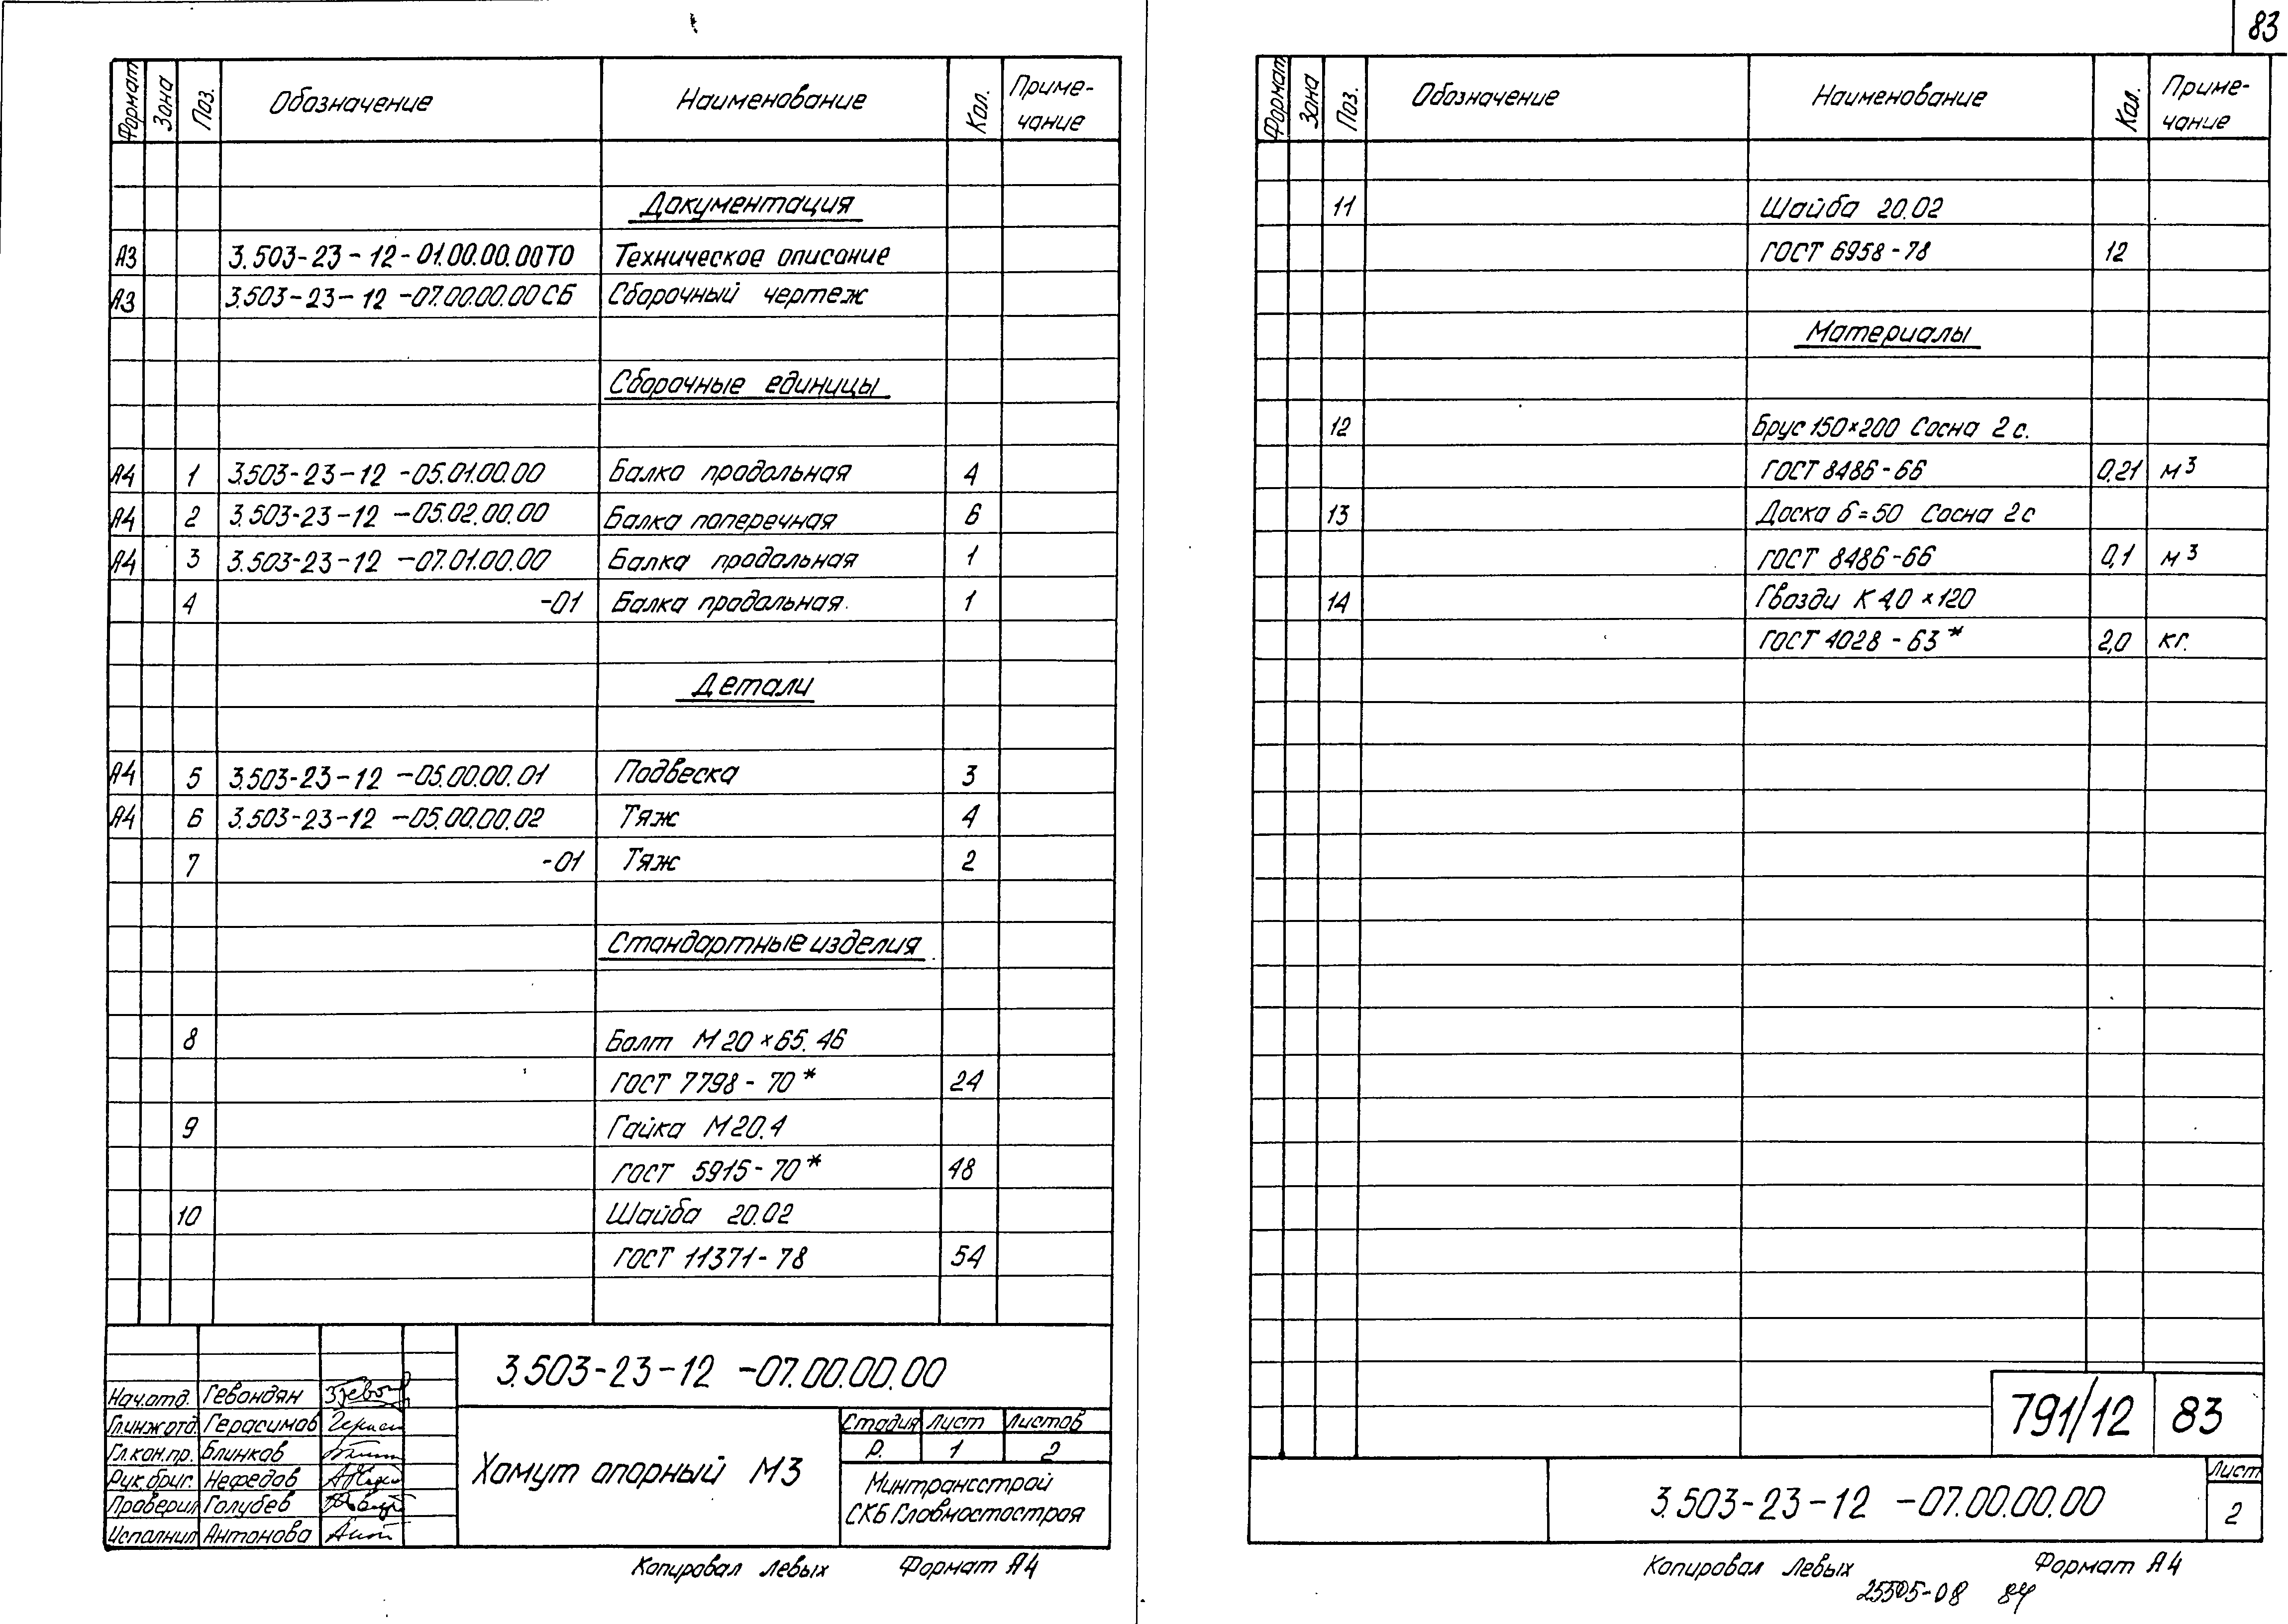 83
Формат Зона Поз. Обозначение Наименование Кол. Приме-
чание
Документация
А3 3.503-23-12-01.00.00.00ТО Техническое описание
А3 3.503-23-12-07.00.00.00СБ Сборочный чертеж
Сборочные единицы
А4 1 3.503-23-12-05.01.00.00 Балка продольная 4
А4 2 3.503-23-12-05.02.00.00 Балка поперечная 6
А4 3 3.503-23-12-07.01.00.00 Балка продольная 1
4 -01 Балка продольная. 1
Детали
А4 5 3.503-23-12-05.00.00.01 Подвеска 3
А4 6 3.503-23-12-05.00.00.02 Тяж 4
7 -01 Тяж 2
Стандартные изделия
8 Болт М20×65.46
ГОСТ 7798-70* 24
9 Гайка М20.4
ГОСТ 5915-70* 48
10 Шайба 20.02
ГОСТ 11371-78 54
3.503-23-12-07.00.00.00
Нач.отд. Гевондян
Гл.инж.отд. Герасимов
Гл.кон.пр. Блинков
Рук.бриг. Нефедов
Проверил Голубев
Исполнил Антонова
Хомут опорный М3
Стадия Лист Листов
Р. 1 2
Минтрансстрой
СКБ Главмостостроя
Копировал Левых Формат А4
Формат Зона Поз. Обозначение Наименование Кол. Приме-
чание
11 Шайба 20.02
ГОСТ 6958-78 12
Материалы
12 Брус 150×200 Сосна 2с.
ГОСТ 8486-66 0,21 м³
13 Доска б=50 Сосна 2с
ГОСТ 8486-66 0,1 м³
14 Гвозди К 4,0×120
ГОСТ 4028-63* 2,0 кг.
791/12 83
3.503-23-12-07.00.00.00
Лист
2
Копировал Левых Формат А4
25505-08 84